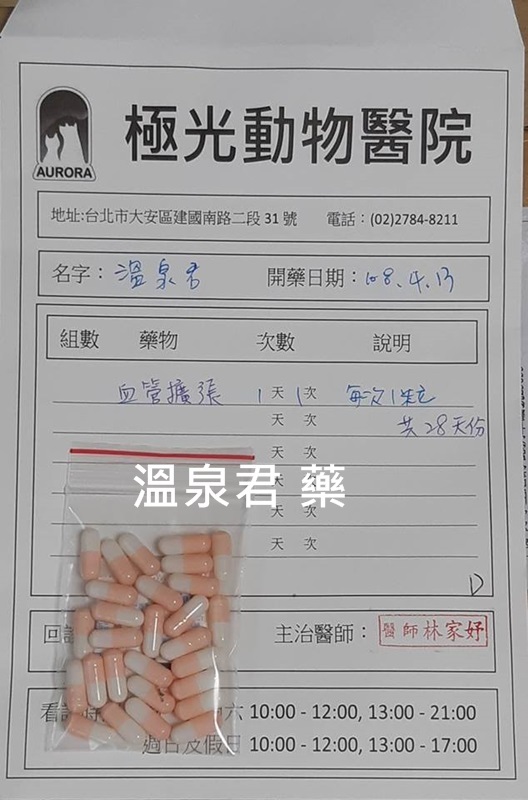 AURORA
極光動物醫院
地址:台北市大安區建國南路二段 31 號 電話：(02)2784-8211
名字：溫泉君 開藥日期：108.4.13
組數 藥物 次數 說明
血管擴張 1 天 1 次 每次1粒
天 次 共28天份
天 次
溫泉君 藥
天 次
天 次
D
回診 主治醫師： 醫師林家妤
看診時 六 10:00 - 12:00, 13:00 - 21:00
週日及假日 10:00 - 12:00, 13:00 - 17:00